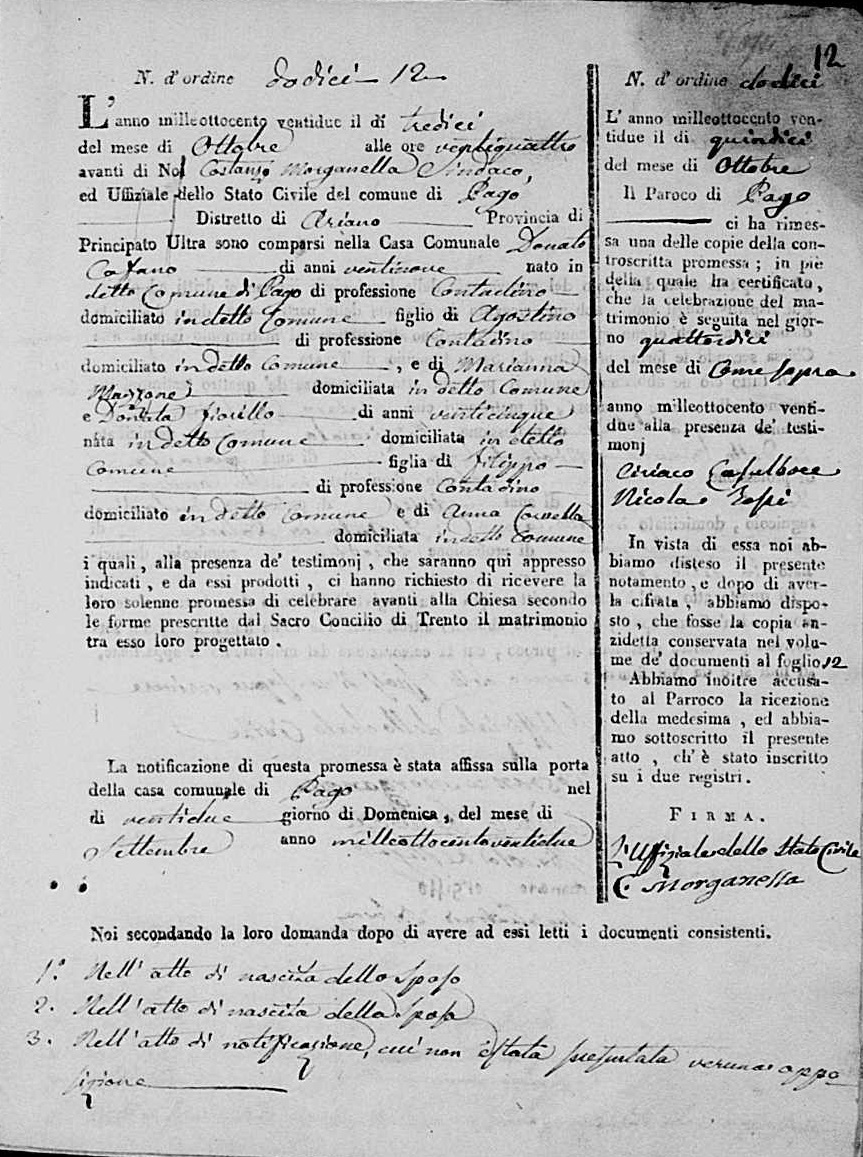 12
N. d'ordine dodici 12
L'anno milleottocento ventidue il dì tredici
del mese di Ottobre alle ore ventiquattro
avanti di Noi Costanzo Morganella Sindaco,
ed Uffiziale dello Stato Civile del comune di Pago
Distretto di Ariano Provincia di
Principato Ultra sono comparsi nella Casa Comunale Donato
Cafano di anni ventinove nato in
detto Comune di Pago di professione Contadino
domiciliato in detto Comune figlio di Agostino
di professione Contadino
domiciliato in detto Comune, e di Marianna
domiciliata in detto Comune
e Donata Fiorillo di anni venticinque
nata in detto Comune domiciliata in detto
Comune figlia di Filippo
di professione Contadino
domiciliato in detto Comune e di Anna
domiciliata in detto Comune
i quali, alla presenza de' testimonj, che saranno qui appresso
indicati, e da essi prodotti, ci hanno richiesto di ricevere la
loro solenne promessa di celebrare avanti alla Chiesa secondo
le forme prescritte dal Sacro Concilio di Trento il matrimonio
tra esso loro progettato.
La notificazione di questa promessa è stata affissa sulla porta
della casa comunale di Pago nel
di ventidue giorno di Domenica, del mese di
Settembre anno milleottocentoventidue
N. d'ordine dodici
L'anno milleottocento ven-
tidue il di quindici
del mese di Ottobre
Il Paroco di Pago
ci ha rimes-
sa una delle copie della con-
troscritta promessa; in piè
della quale ha certificato,
che la celebrazione del ma-
trimonio è seguita nel gior-
no quattordici
del mese di Come sopra
anno milleottocento venti-
due alla presenza de' testi-
monj
Ciriaco
Nicola
In vista di essa noi ab-
biamo disteso il presente
notamento, e dopo di aver-
la cifrata, abbiamo dispo-
sto, che fosse la copia an-
zidetta conservata nel volu-
me de' documenti al foglio 12
Abbiamo inoltre accusa-
to al Parroco la ricezione
della medesima, ed abbia-
mo sottoscritto il presente
atto, ch'è stato inscritto
su i due registri.
FIRMA.
L'Uffiziale dello Stato Civile
C. Morganella
Noi secondando la loro domanda dopo di avere ad essi letti i documenti consistenti.
1.° Nell'atto di nascita dello Sposo
2. Nell'atto di nascita della Sposa
3. Nell'atto di notificazione, cui non è stata presentata veruna oppo
sizione